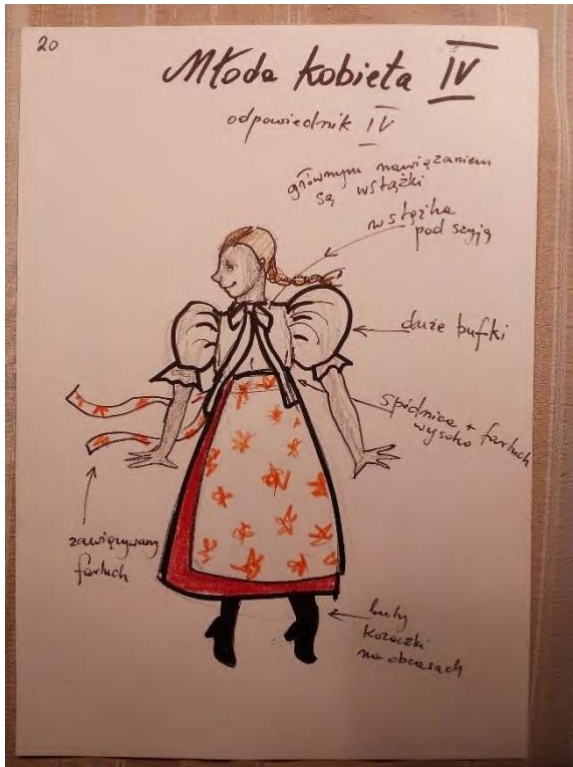 20
Młoda kobieta IV
odpowiednik IV
głównym nawiązaniem
są wstążki
wstążka
pod szyją
duże bufki
spódnica + fartuch
wysoko
zawiązywany
fartuch
buty
kozaczki
na obcasach